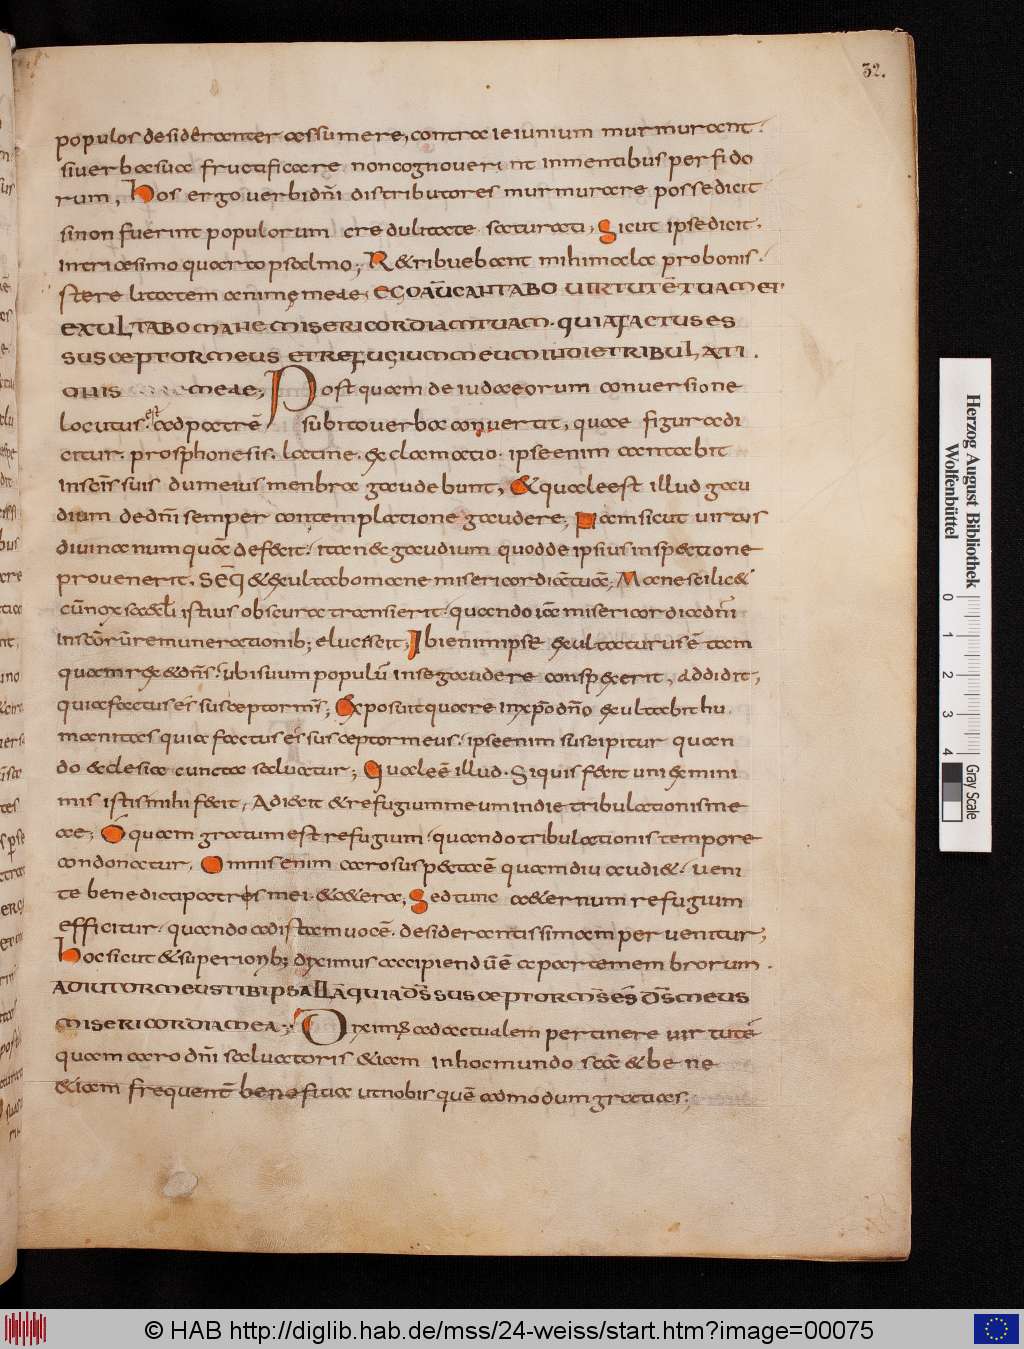 32.
populos desideranter assumere, contra ieiunium murmurant.
si verba sua fructificare non cognoverint in mentibus perfido
rum, Hos ergo verbi dn̄i distributores murmurare posse dicit
si non fuerint populorum credulitate saturati, Sicut ipse dicit,
in tricesimo quarto psalmo; Retribuebant mihi mala pro bonis.
sterelitatem animę meae; EGO AUT̄ CANTABO UIRTUTĒ TUAM ET
EXULTABO MANE MISERICORDIAM TUAM. QUIA FACTUS ES
SUSCEPTOR MEUS ET REFUGIUM MEUM IN DIE TRIBULATI
ONIS MEAE; Postquam de iudaeorum conversione
locutus. est ad patrē subito verba convertit, quae figura di
citur. prosphonesis. latine. exclamatio. ipse enim cantabit
in sc̄is suis dum eius menbra gaudebunt, Et quale est illud gau
dium de dn̄i semper contemplatione gaudere, Nam sicut virtus
divina numquā deficit. ita nec gaudium quod de ipsius inspectione
provenerit. Seq̄ et exultabo mane misericordiā tuā; Mane scilicet
cū nox saecl̄i istius obscura transierit. quando iā misericordia dn̄i
in sc̄orū remunerationib; eluxerit; Ibi enim ipse exultaturus ē tam
quam rex et dn̄s. ubi suum populū in se gaudere conspexerit, addidit,
quia factus es susceptor m̄s; Exposuit quare in xp̄o dn̄o exultabit hu
manitas quia factus es susceptor meus. ipse enim suscipitur quan
do ecclesia cuncta salvatur; Quale ē illud. Si quis fecit uni ex mini
mis istis mihi fecit, Adiecit et refugium meum in die tribulationis me
ae; O quam gratum est refugium. quando tribulationis tempore
condonatur, Omnis enim caro suspectat ē quam diu audiet. veni
te benedicti patris mei. et cetera, Sed tunc aeternum refugium
efficitur. quando ad istam vocē. desiderantissimam pervenitur;
Hoc sicut et superiorib; diximus accipiendū ē a parte membrorum.
ADIUTOR MEUS TIBI PSALLĀ QUIA D̄S SUSCEPTOR M̄S ES D̄S MEUS
MISERICORDIA MEA; Diximus ad actualem pertinere virtutē
quam caro dn̄i salvatoris etiam in hoc mundo scā et bene
etiam frequenter beneficia ut nobis quē admodum gratias.
Herzog August Bibliothek
Wolfenbüttel
0 1 2 3 4
Gray Scale
© HAB http://diglib.hab.de/mss/24-weiss/start.htm?image=00075